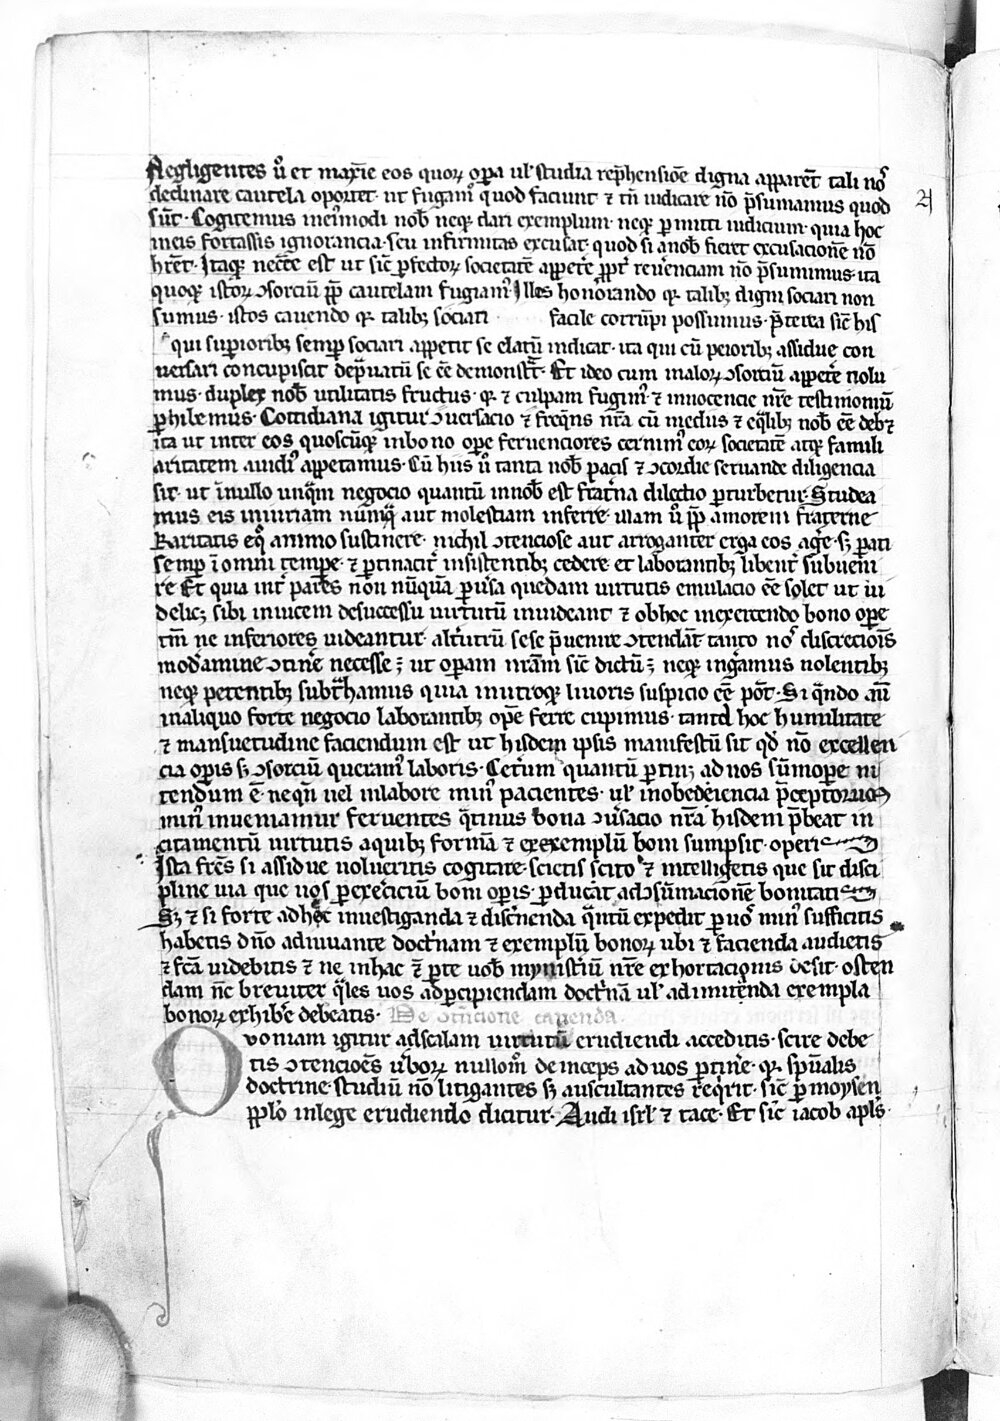 Negligentes ũ et maxı̄e eos quoꝝ oꝑa ul' studia rep̄hensiōe digna apparēt tali noˢ
declinare cautela oportet · ut fugamꝰ quod faciunt ⁊ tñ iudicare nō p̄sumamus quod
sūt · Cogitemus inei᷒modi nob̄ neqꝫ dari exemplum · neqꝫ ꝑmitti iudicium · quia hoc
ineis fortassis ignorancia · seu infirmitas excusat · quod si anob̄ fieret excusacionē nō
hrēt · Itaqꝫ necēe est ut sic̄ ꝑfectoꝝ societatē appeteˀ ꝓpt̄ reueˀenciam nō p̄sumimus · ita
quoqꝫ istoꝝ ↄsorciū ꝓp̄ cautelam fugiamꝰ Illos honorando qꝫ talibꝫ digni sociari non
sumus · istos cauendo qꝫ talibꝫ sociari facile corrūpi possumus · p̄terea sic̄ his
qui suꝑioribꝫ semꝑ sociari appetit se elatū indicat · ita qui cū peioribꝫ assidue con
uersari concupiscit dep̄uatū se ēe demonst̄t · Et ideo cum maloꝝ ↄsorciū appeteˀ nolu
mus · duplex nob̄ utilitatis fructus · qꝫ ⁊ culpam fugimꝰ ⁊ innocencie nr̄e testimoniū
ꝑhibemus · Cottidiana igitur ↄuersacio ⁊ freq̄ns nr̄a cū mediis ⁊ eq̄libꝫ nob̄ ēe debꝫ
ita ut inter eos quoscūqꝫ inbono oꝑe feruenciores cernimꝰ eoꝝ societatē atqꝫ famili
aritatem auidiꝰ appetamus · Cū hiis ũ tanta nob̄ pacis ⁊ ↄcordie seruande diligencia
sit · ut īnullo unq̄m negocio quantū innob̄ est frat̄na dilectio ꝑturbetur · Studea
mus eis iniuriam nūmq̄ aut molestiam inferre · illam ũ ꝓp̄ amorem fraterne
Karitatis eqͦ animo sustinere · nichil ↄtenciose aut arroganter erga eos ageˀ sꝫ pati
semꝑ ī omni tempe · ⁊ ꝑtinacit̄ insistentibꝫ cedere et laborantibꝫ libent̄ subueni
re Et quia int̄ pares non nūquā ꝑuˀsa quedam uirtutis emulacio ēe solet ut ui
delicꝫ sibi inuicem desuccessu uirtutū inuideant ⁊ obhoc inexercendo bono oꝑe
tm̄ ne inferiores uideantur · altˀutrū sese p̄uenire ↄtendāt tanto noˢ discrecioīs
modˀamine ↄtineˀe necesse ē ut oꝑam nr̄am sic̄ dictū ē neqꝫ ingˀamus nolentibꝫ
neqꝫ petentibꝫ subtˀhamus quia inutroqꝫ liuoris suspicio ēe pōt · Si q̄ndo aū
inaliquo forte negocio laborantibꝫ oꝑe ferre cupimus · tanta hoc humilitate
⁊ mansuetudine faciendum est ut hisdem ipsis manifestū sit qd̄ nō excellen
cia oꝑis sꝫ ↄsorciū queramꝰ laboris · Cetˀum quantū ꝑtinꝫ ad nos sūmoꝑe ni
tendum ē · neqn̄ uel inlabore minꝰ pacientes · ul' inobediencia p̄ceptorum
minꝰ inueniamur feruentes q̄tinus bona ↄuˀsacio nr̄a hisdem p̄beat in
citamentū uirtutis aquibꝫ formā ⁊ exemplū boni sumpsit · operis
Ista fr̄es si assidue uolueritis cogitare · scietis scitoˢ ⁊ intelligetis que sit disci
pline uia que uos ꝑ exerciciū boni oꝑis · ꝑducat adↄsūmacionē bonitatis
Sꝫ ⁊ si forte adhęc inuestiganda ⁊ discˀnenda q̄ntū expedit ꝑ uoˢ minꝰ sufficitis
habetis dn̄o adiuuante doctˀnam ⁊ exemplū bonoꝝ ubi ⁊ facienda audietis
⁊ fc̄a uidebitis ⁊ ne inhac ⁊ ꝑte uob̄ mynistˀiū nr̄e exhortacionis desit · osten
dam nc̄ breuiter q̄les uos ad ꝑcipiendam doctˀnā ul' ad imitˀenda exempla
bonoꝝ exhibeˀe debeatis · De ↄtēncione cauenda ·
Quoniam igitur adscalam uirtutū erudiendi acceditis · scire debe
tis ↄtencioēs uˀboꝝ nullom̄ deinceps ad uos ꝑtineˀe · qꝫ sp̄ualis
doctrine · studiū nō litigantes sꝫ auscultantes reqˀrit · sic̄ ꝑ moysen
pp̄lo inlege erudiendo dicitur · Audi isrl' ⁊ tace · Et sic̄ iacob apl's ·